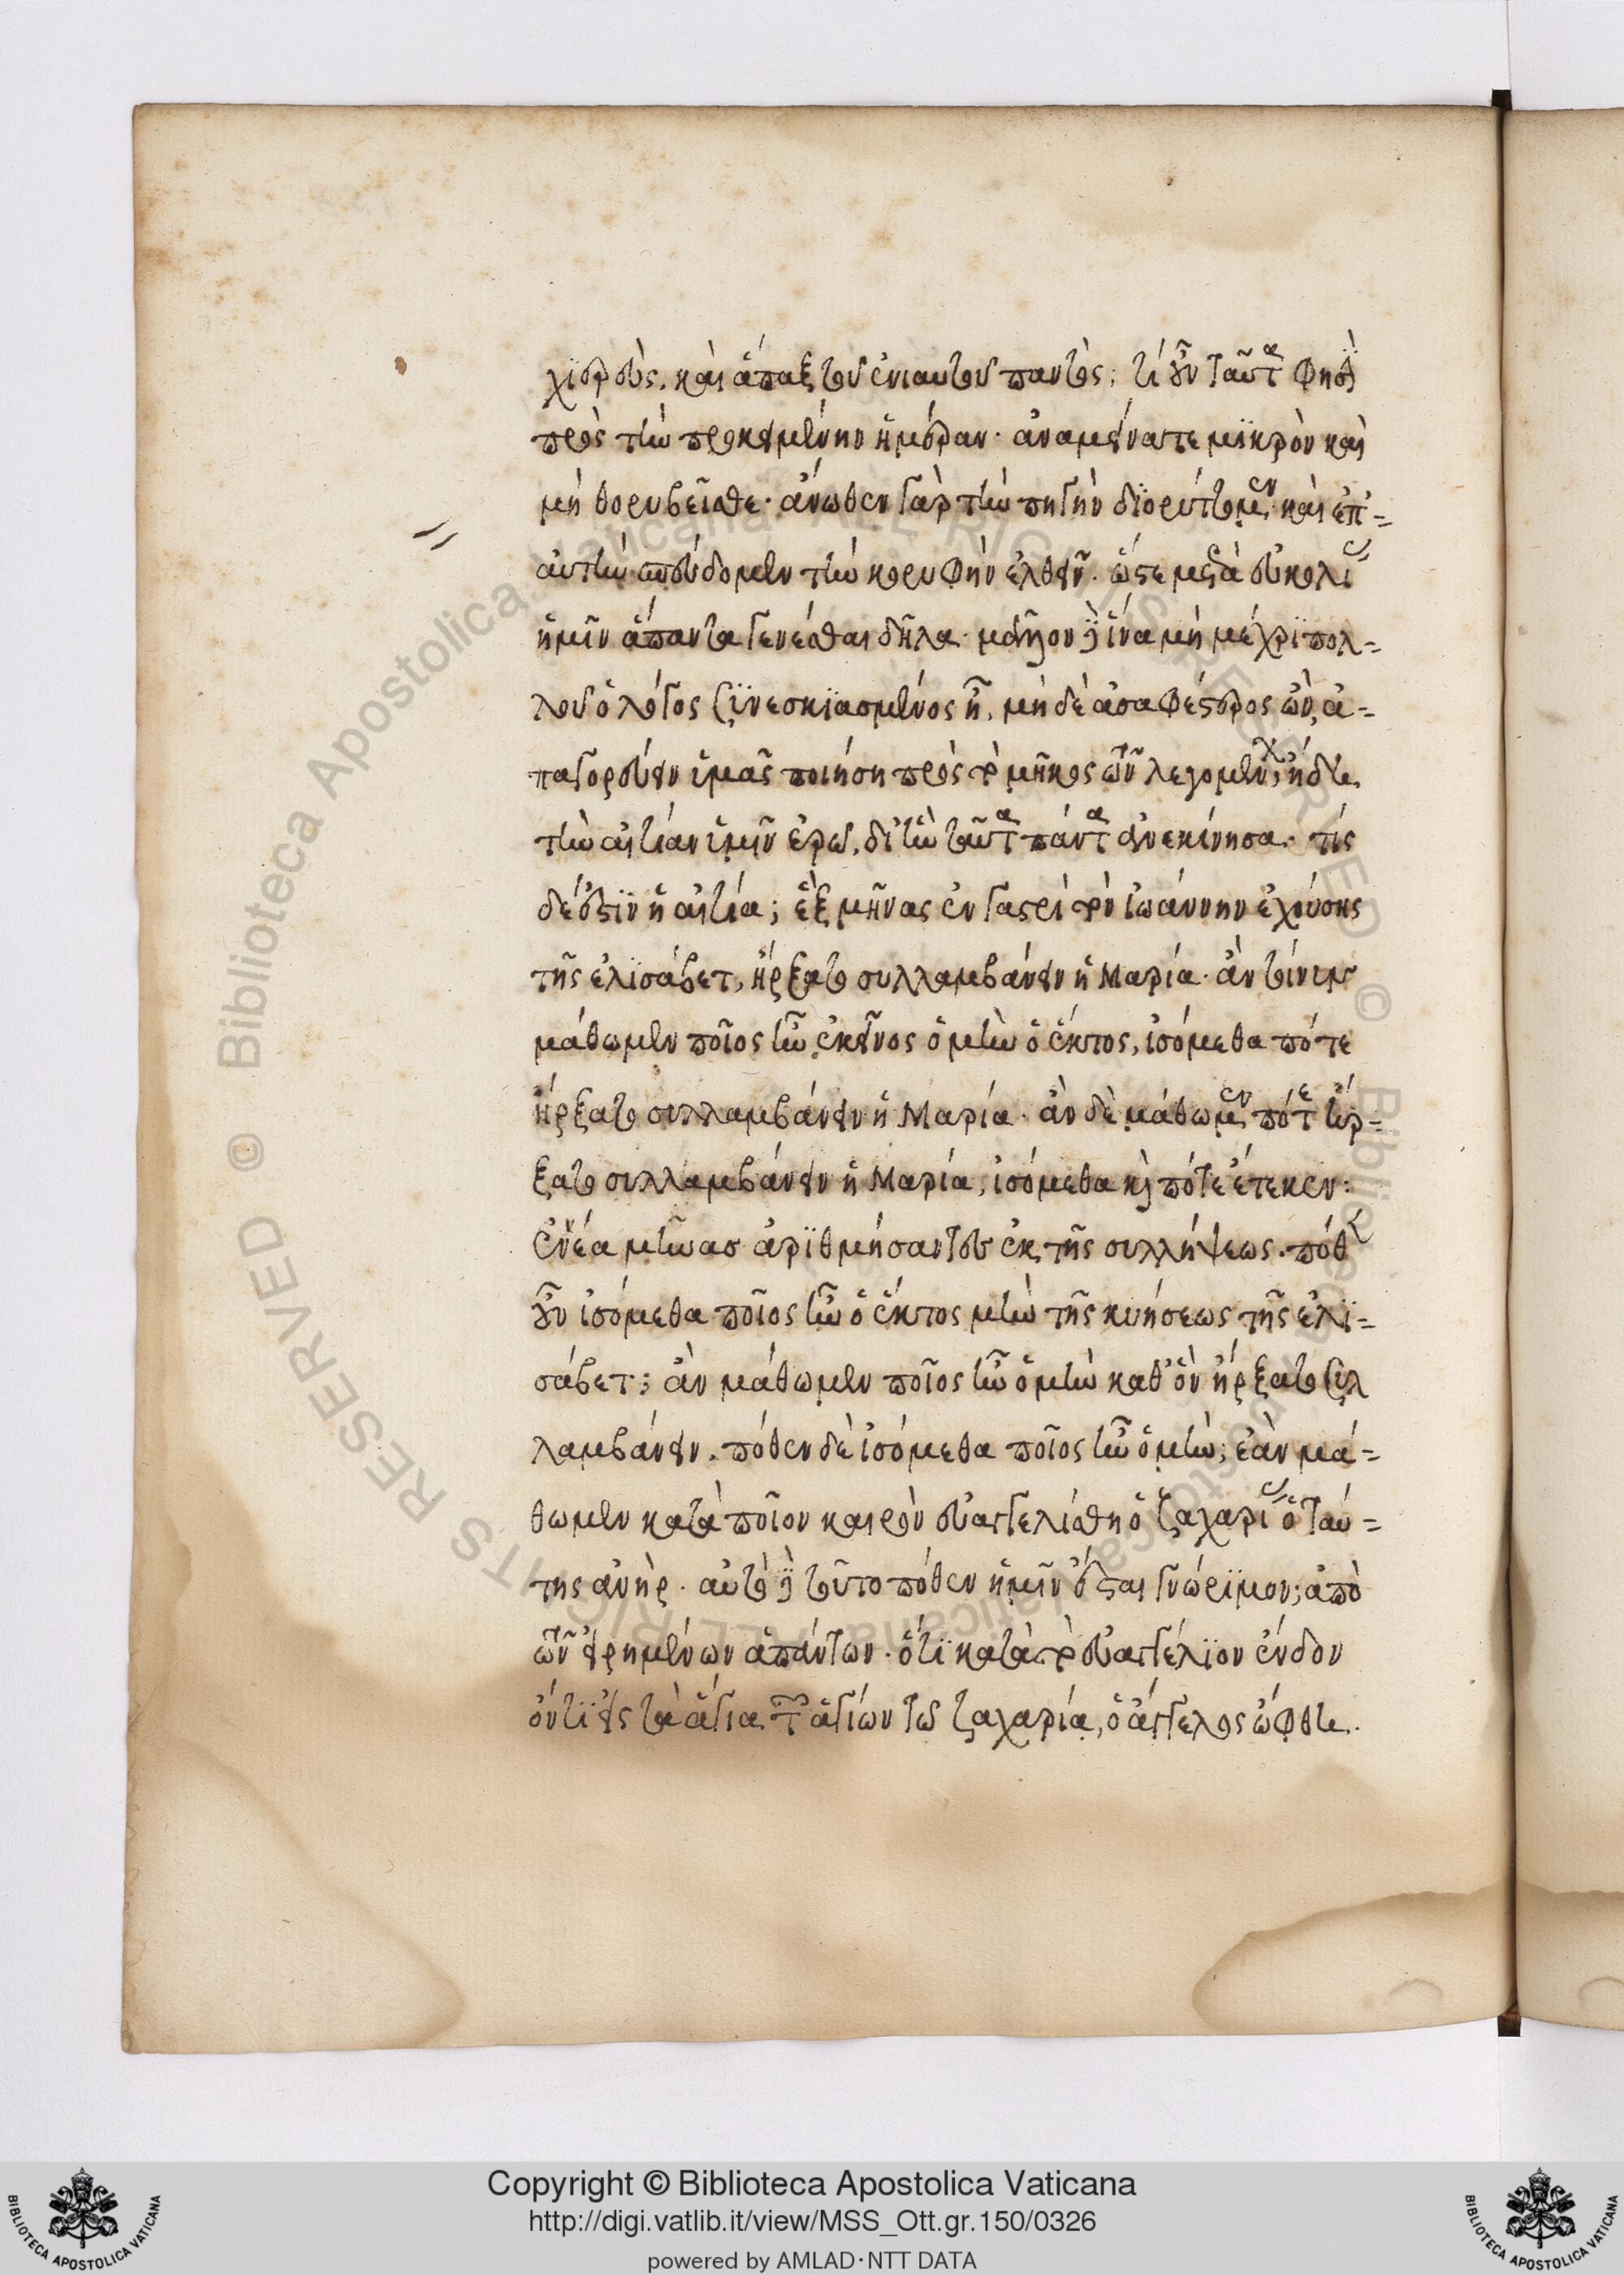 χϊερεὺς, καὶ ἅπαξ τοῦ ἐνιαυτοῦ παντός; τί οὖν ταῦτα φησὶ
πρὸς τὴν προκειμένην ἡμέραν· ἀναμείνατε μϊκρὸν καὶ
μὴ θορυβεῖσθε· ἄνωθεν γὰρ τὴν πηγὴν δϊορύττομεν καὶ ἐπ’-
αὐτὴν σπεύδομεν τὴν κορυφὴν ἐλθεῖν. ὥστε μετὰ εὐκολίας
ἡμῖν ἅπαντα γενέσθαι δῆλα· μᾶλλον δὲ ἵνα μὴ μέχρϊ πολ-
λοῦ ὁ λόγος συνεσκϊασμένος ᾖ, μὴ δὲ ἀσαφέστερος ὢν, ἀ-
παγορεύειν ὑμᾶς ποιήση πρὸς τὸ μῆκος τῶν λεγομένων, ἤδη
τὴν αἰτίαν ὑμῖν ἐρῶ, δι’ ἣν ταῦτα πάντα ἀνεκίνησα· τίς
δέ ἐστϊν ἡ αἰτία; ἓξ μῆνας ἐν γαστρὶ τὸν ἰωάννην ἐχούσης
τῆς ἐλϊσάβετ, ἤρξατο συλλαμβάνειν ἡ Μαρία· ἂν τοίνυν
μάθωμεν ποῖος ἦν ἐκεῖνος ὁ μὴν ὁ ἕκτος, εἰσόμεθα πότε
ἤρξατο συλλαμβάνειν ἡ Μαρία· ἂν δὲ μάθωμεν πότε ἤρ-
ξατο συλλαμβάνειν ἡ Μαρία, εἰσόμεθα καὶ πότε ἔτεκεν:
ἐννέα μῆνας ἀρϊθμήσαντες ἐκ τῆς συλλήψεως. πόθεν
οὖν εἰσόμεθα ποῖος ἦν ὁ ἕκτος μὴν τῆς κυήσεως τῆς ἐλϊ-
σάβετ; ἂν μάθωμεν ποῖος ἦν ὁ μὴν καθ’ ὃν ἤρξατο συλ
λαμβάνειν. πόθεν δὲ εἰσόμεθα ποῖος ἦν ὁ μὴν; ἐὰν μά-
θωμεν κατὰ ποῖον καιρὸν εὐαγγελίσθη ὁ ζαχαρίας ὁ ταύ-
της ἀνήρ. αὐτὸ δὲ τοῦτο πόθεν ἡμῖν ἔσται γνώρϊμον; ἀπὸ
τῶν εἰρημένων ἁπάντων. ὅτϊ κατὰ τὸ εὐαγγέλϊον ἔνδον
ὄντϊ εἰς τὰ ἅγια τῶν ἁγίων τῶ ζαχαρία, ὁ ἄγγελος ὤφθη.
Copyright © Biblioteca Apostolica Vaticana
http://digi.vatlib.it/view/MSS_Ott.gr.150/0326
powered by AMLAD·NTT DATA